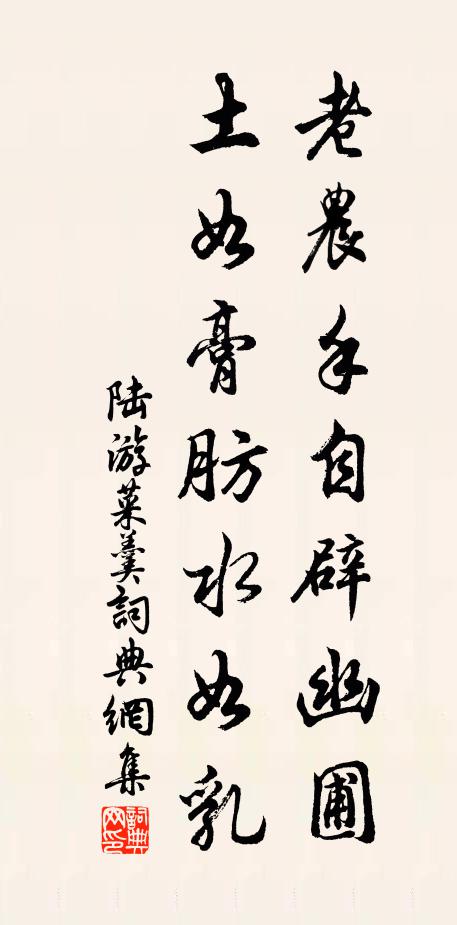 老農手自辟幽圃
土如膏肪水如乳
陸游菜羹詞典網集
詞典網印